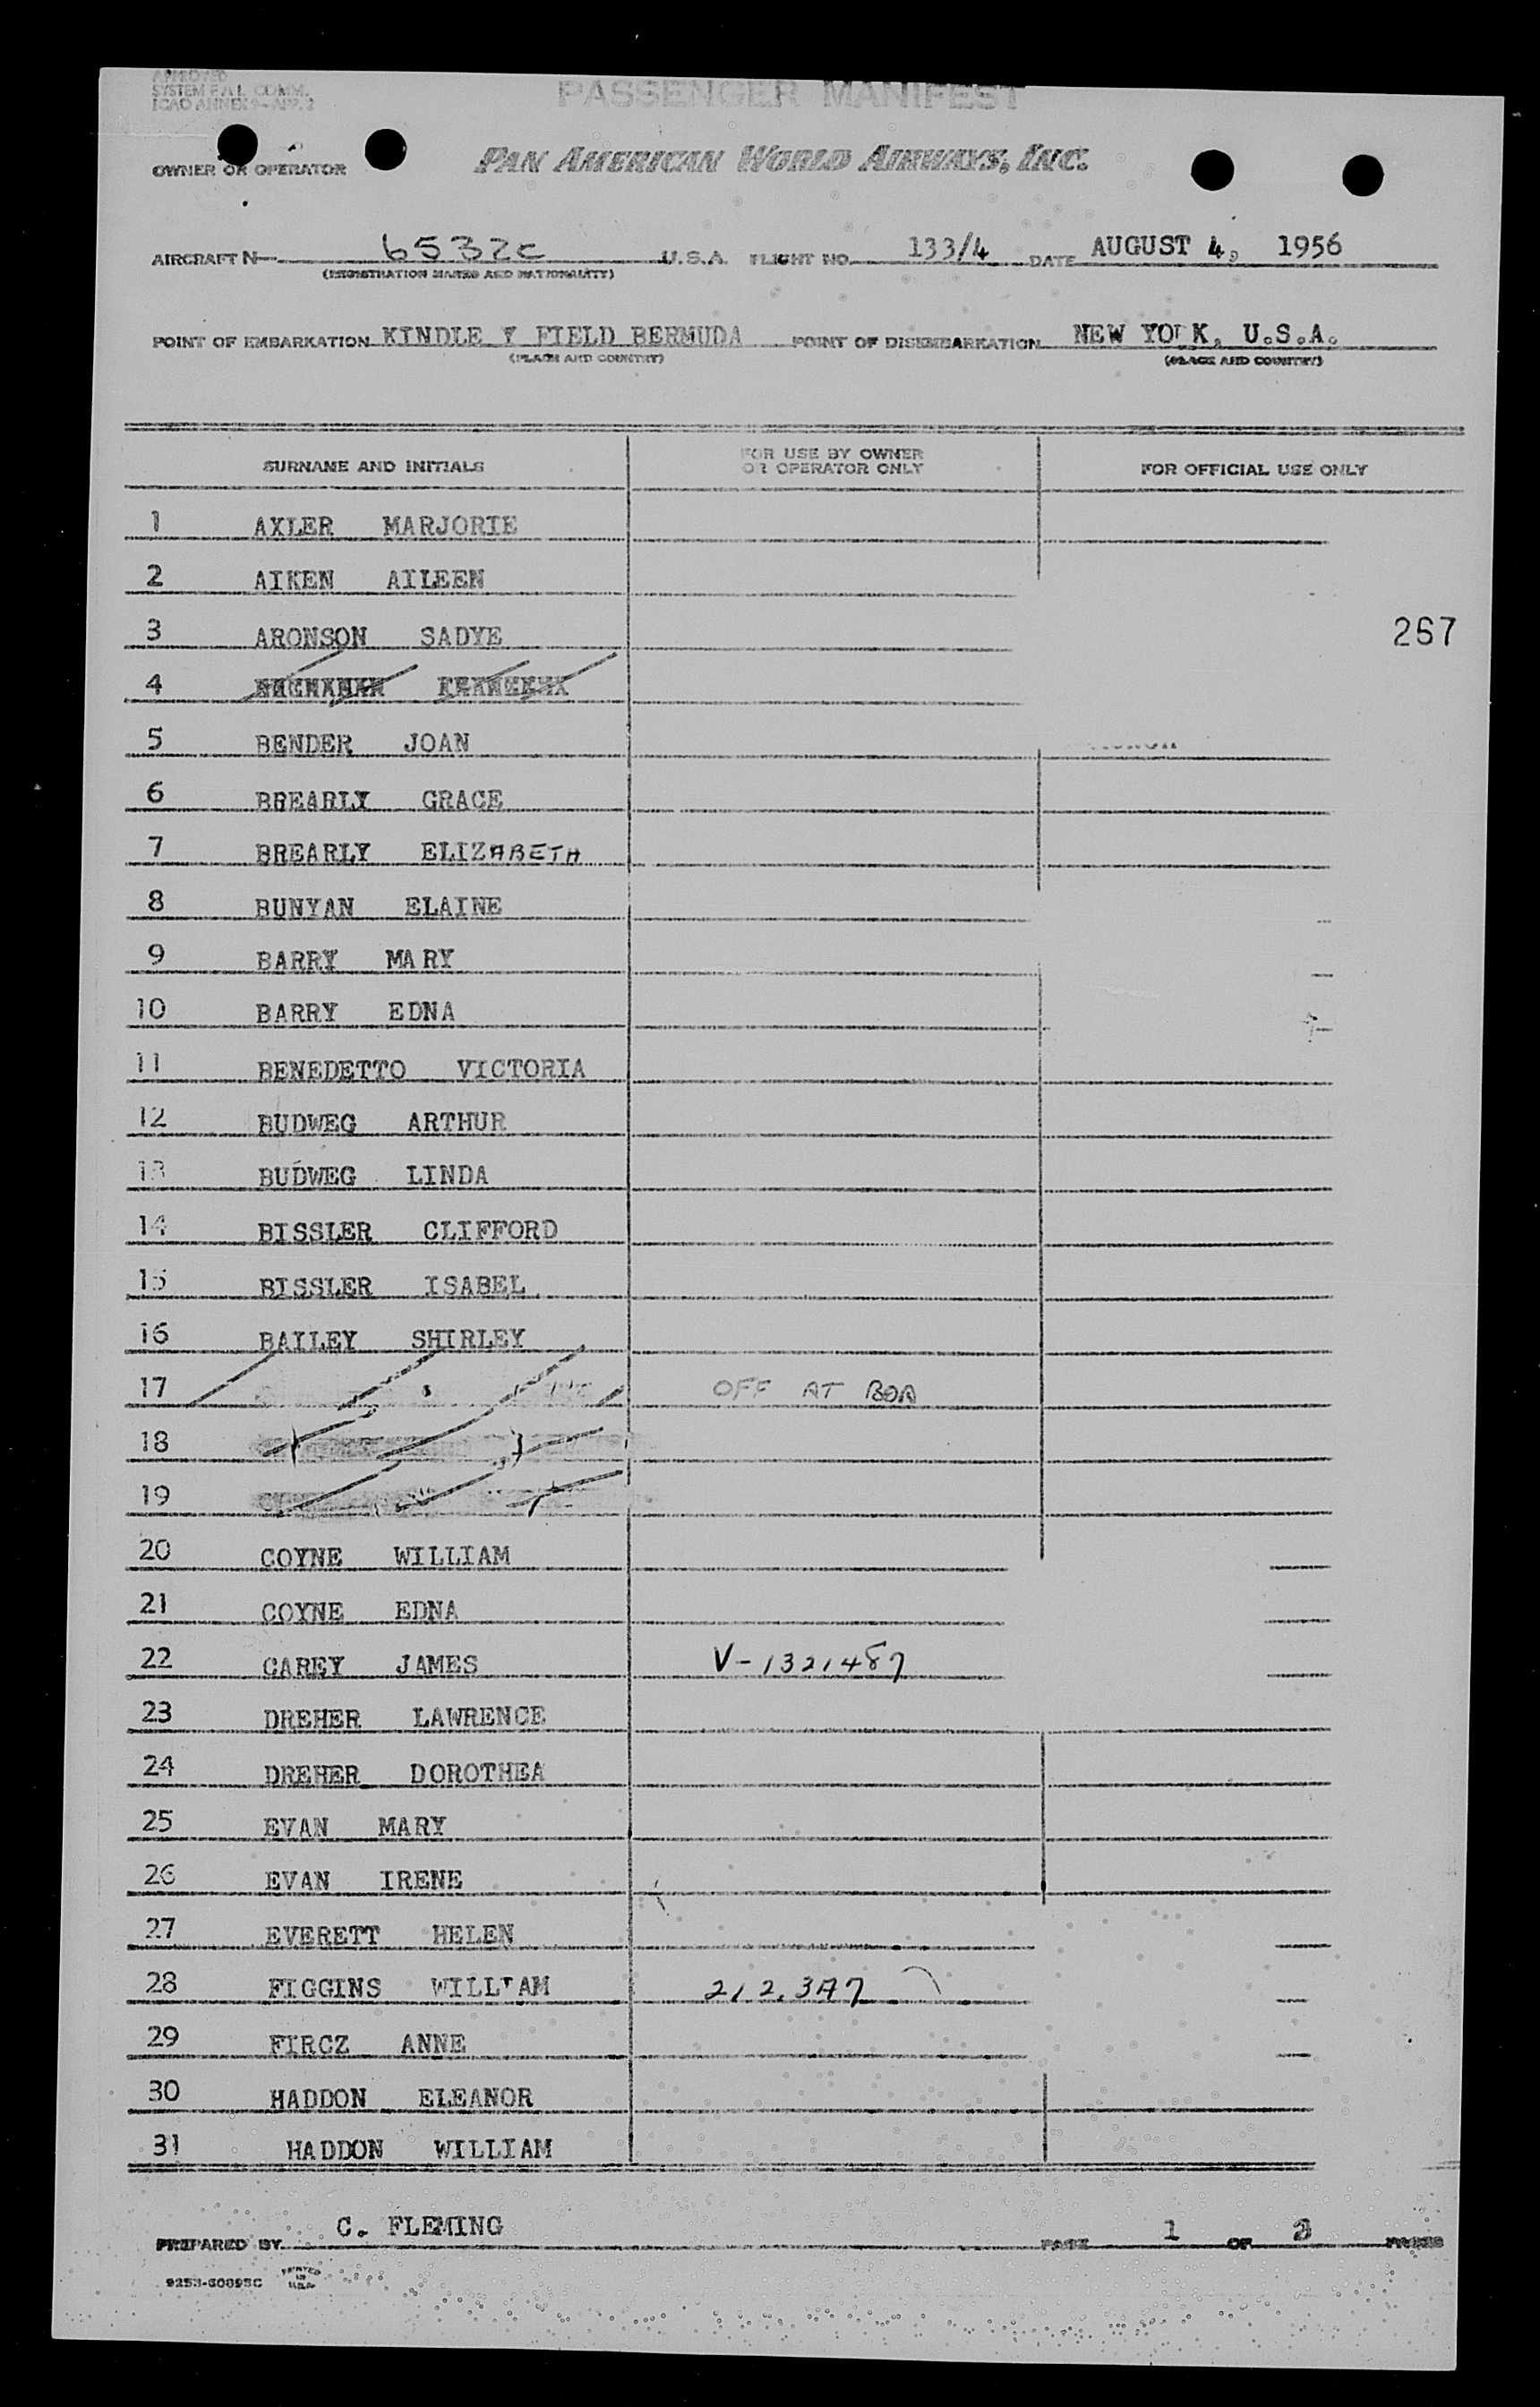 APPROVED
SYSTEM F.A.L. COMM.
ICAO ANNEX 9-APP. 2
PASSENGER MANIFEST
OWNER OR OPERATOR PAN AMERICAN WORLD AIRWAYS, INC.
AIRCRAFT N— 6532C U.S.A. FLIGHT NO. 133/4 DATE AUGUST 4, 1956
(REGISTRATION MARKS AND NATIONALITY)
POINT OF EMBARKATION KINDLE Y FIELD BERMUDA POINT OF DISEMBARKATION NEW YO K, U.S.A.
(PLACE AND COUNTRY) (PLACE AND COUNTRY)
SURNAME AND INITIALS FOR USE BY OWNER OR OPERATOR ONLY FOR OFFICIAL USE ONLY
1 AXLER MARJORIE
2 AIKEN AILEEN
3 ARONSON SADYE
267
4
5 BENDER JOAN
6 BREARLY GRACE
7 BREARLY ELIZABETH
8 BUNYAN ELAINE
9 BARRY MARY
10 BARRY EDNA
11 BENEDETTO VICTORIA
12 BUDWEG ARTHUR
13 BUDWEG LINDA
14 BISSLER CLIFFORD
15 BISSLER ISABEL
16 BAILEY SHIRLEY
17 OFF AT BDA
18
19
20 COYNE WILLIAM
21 COYNE EDNA
22 CAREY JAMES V-1321487
23 DREHER LAWRENCE
24 DREHER DOROTHEA
25 EVAN MARY
26 EVAN IRENE
27 EVERETT HELEN
28 FIGGINS WILLIAM 212.3A7
29 FIRCZ ANNE
30 HADDON ELEANOR
31 HADDON WILLIAM
PREPARED BY C. FLEMING PAGE 1 OF 3 PAGES
9253-60695C PRINTED IN U.S.A.